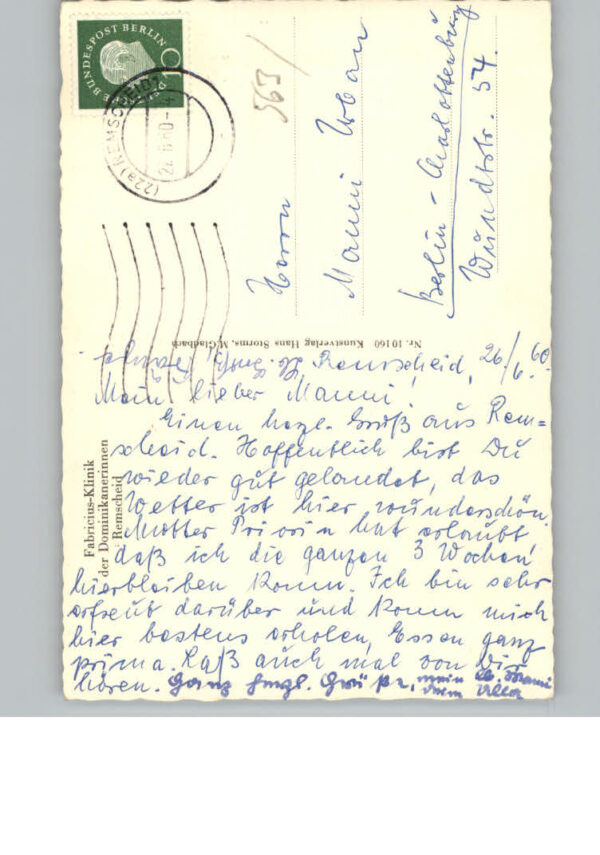 DEUTSCHE BUNDESPOST BERLIN
(22a) REMSCHEID
563/
Herrn
Manni Urban
Berlin - Charlottenburg
Wundtstr. 54.
Nr. 10160 Kunstverlag Hans Storms, M.Gladbach
Fabricius-Klinik
der Dominikanerinnen
Remscheid
Remscheid, 26/6.60.
Mein lieber Manni!
Einen herzl. Gruß aus Rem=
scheid. Hoffentlich bist Du
wieder gut gelandet, das
Wetter ist hier wunderschön.
Mutter Priorin hat erlaubt
daß ich die ganzen 3 Wochen
hierbleiben kann. Ich bin sehr
erfreut darüber und kann mich
hier bestens erholen, Essen ganz
prima. Laß auch mal von Dir
hören. Ganz herzl. Grüße, mein lb. Manni